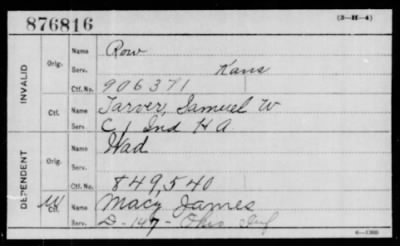 876816
(3—H—4)
INVALID
Orig. Name Row
Serv. Kans
Ctf. No. 906371
Ctf. Name Tarver, Samuel W
Serv. C, Ind H A
DEPENDENT
Orig. Name Wad
Serv.
Ctf. No. 849,540
Ctf. Name Macy James
Serv. D-147- Ohio Inf
6—1380